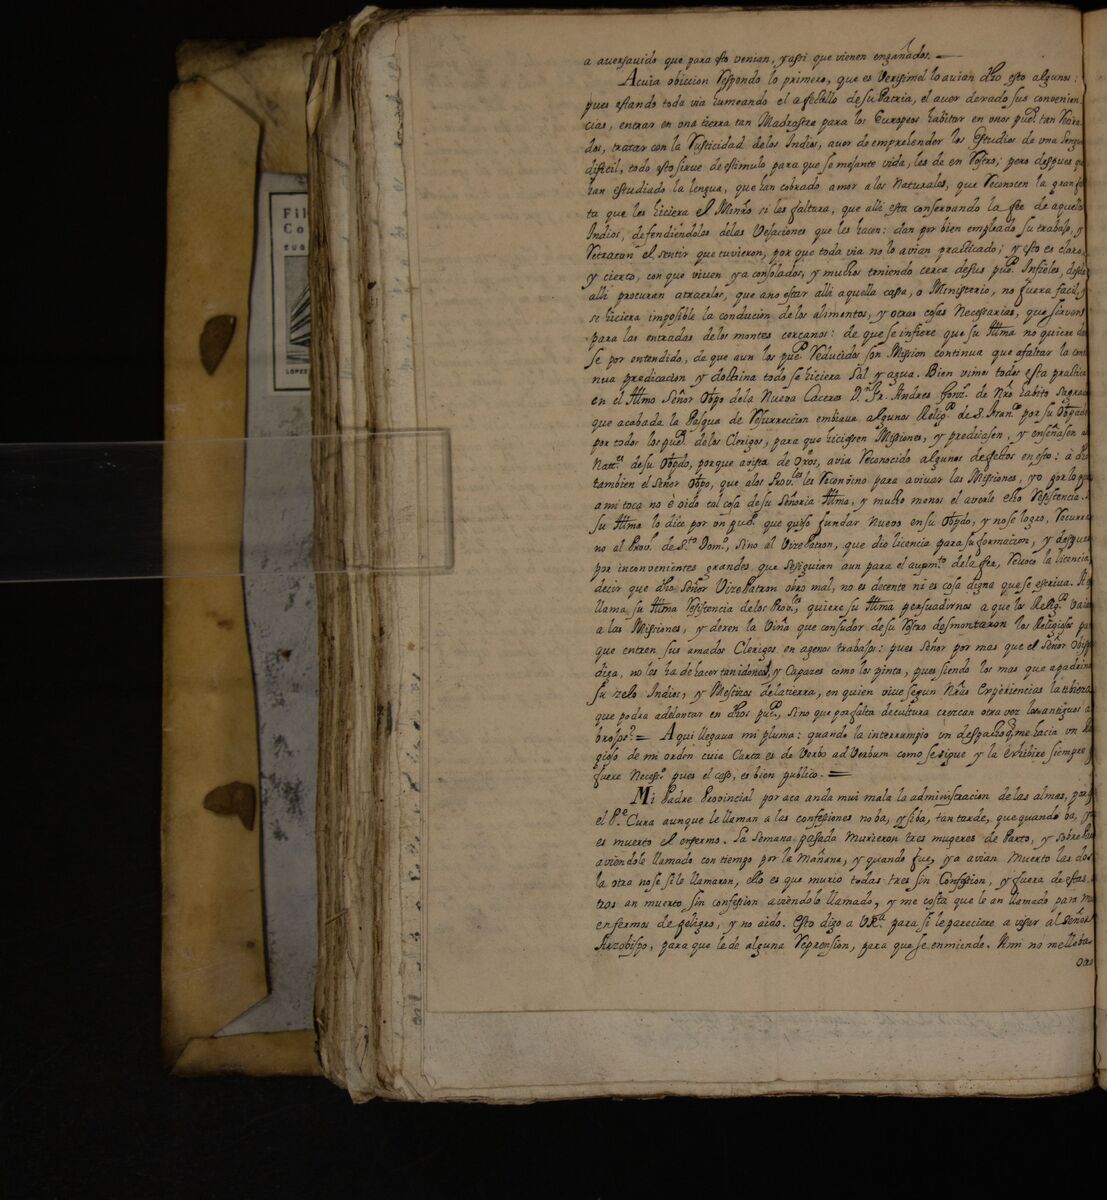 a aversavido que para esto venian, y assi que vienen engañados.
A cuia obiccion Respondo lo primero, que es Verisimel lo avian dho esto algunos;
pues estando toda via humeando el afectillo de su Patria, el aver dexado sus convenien
cias, entrar en una tierra tan Madrastra para los Europeos habitar en unos pueb.s tan Retira
dos, tratar con la Rusticidad de los Indios, aver de emprender los Estudios de una lengua
dificil, todo esto sirve de estimulo para que semejante vida, les de en Rostro; pero despues que
han estudiado la lengua, que han cobrado amor a los Naturales, que Reconocen la gran fal
ta que les hiciera el Minro si les faltara, que alli esta conservando la fee de aquellos
Indios, defendiendolos de las Vejaciones que les hacen: dan por bien empleado su trabajo, y
Retractan el sentir que tuvieron, por que toda via no lo avian practicado; y esto es claro,
y cierto, con que viven ya consolados, y muchos teniendo cerca de sus pueb.s Infieles, desde
alli procuran atraerlos, que a no estar alli aquella casa, o Ministerio, no fuera facil, y
se hiciera imposible la conducion de los alimentos, y otras cosas Necessarias, que sirven
para las entradas de los montes cercanos: de que se infiere que su Illma no quiere dar
se por entendido, de que aun los pueb.s Reducidos son Mission continua que a faltar la conti
nua predicacion y doctrina todo se hiciera Sal y agua. Bien vimos todos esta practica
en el Illmo Señor Obpo de la Nueva Caceres D.n Fr. Andres Gonz. de Nro habito Sagrado
que acabada la Pasqua de Resurreccion embiava algunos Relig.s de S. Fran.co por su Obpado
por todos los pueb.s de los Clerigos, para que hiciessen Missiones, y predicasen, y enseñasen a los
Natt.s de su Obpdo, porque avista de ojos, avia Reconocido algunos defectos en esto: a dho
tambien el Señor Obpo, que a los Prov.les les Reconvino para avivar las Missiones, yo por lo que
a mi toca no è oido tal cosa de su Señoria Illma, y mucho menos el averle hho Resistencia. Si
su Illma lo dice por un pueb. que quiso fundar Nuevo en su Obpdo, y no se logro, Recurra
no al Prov.l de S.to Dom.o, sino al Vize Patron, que dio licencia para su formacion, y despues
por inconvenientes grandes que se siguian aun para el aupm.to de la fee, Revoco la licencia
decir que dho Señor Vize Patron obro mal, no es decente ni es cosa digna que se escriva.
llama su Illma Resistencia de los Prov.les, quiere su Illma persuadirnos a que los Relig.s vaian
a las Missiones, y dexen la Viña que con sudor de su Rostro desmontaron los Religiosos para
que entren sus amados Clerigos en agenos trabajos: pues Señor por mas que el Señor Obispo
diga, no los ha de hacer tan idoneos, y Capazes como los pinta, pues siendo los mas que apadrina
su zelo Indios, y Mestizos de la tierra, en quien vive segun Nras Experiencias la tibieza
que podra adelantar en dhos pueb.s, sino que por falta de cultura crezcan otra vez los antiguos a
brojos? = Aqui llegava mi pluma: quando la interrumpio un despacho q me hacia un Reli
gioso de mi orden cuia Carta es de Verbo ad Verbum como se sigue y la exhibire siempre q
fuere Necess.o pues el caso, es bien publico. =
Mi Padre Provincial por aca anda mui mala la administracion de las almas, porq
el P.e Cura aunque le llaman a las confessiones no ba, y si ba, tan tarde, que quando ba, ya
es muerto el enfermo. La semana pasada Murieron tres mugeres de Parto, y sobre Par
aviendole llamado con tiempo por la Mañana, y quando fue, ya avian Muerto las dos
la otra no se si le llamaron, ello es que murio todas tres sin Confession, y fuera de estas
tros an muerto sin confession aviendolo llamado, y me costa que le an llamado para mas
enfermos de peligro, y no a ido. Esto digo a VR.a para si le pareciere avisar al Señor
Arzobispo, para que le de alguna Reprension, para que se enmiende. A mi no me lleba